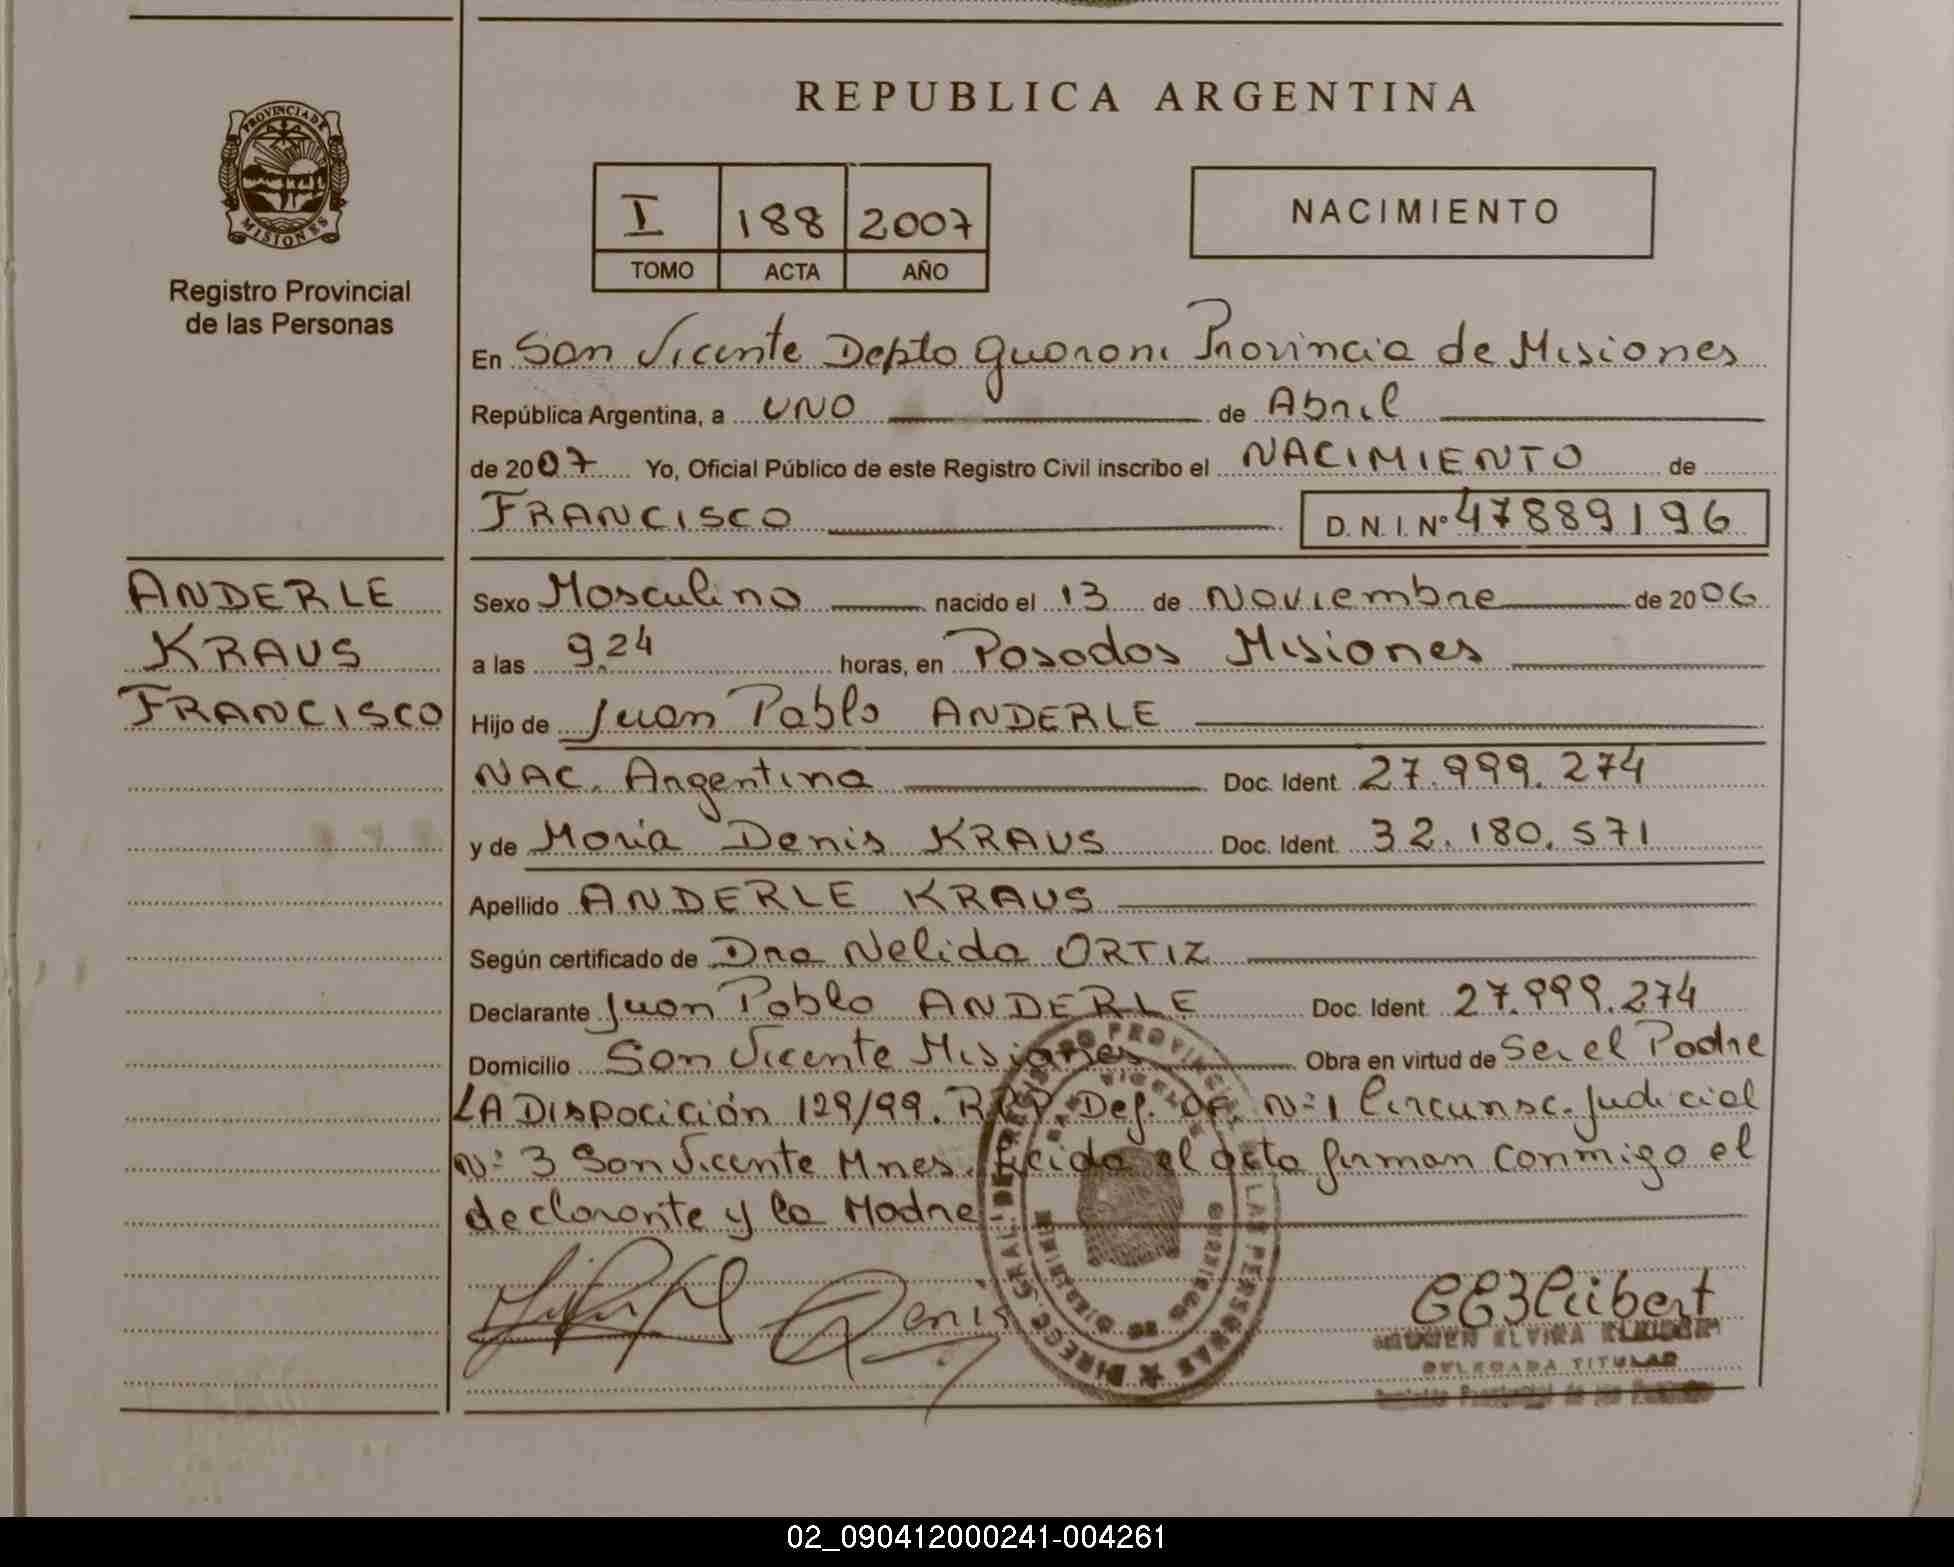 REPUBLICA ARGENTINA
PROVINCIA DE MISIONES
Registro Provincial
de las Personas
I 188 2007
TOMO ACTA AÑO
NACIMIENTO
En San Vicente Depto Guarani Provincia de Misiones
República Argentina, a UNO de Abril
de 2007 Yo, Oficial Público de este Registro Civil inscribo el NACIMIENTO de
FRANCISCO D. N. I. Nº 47889196
ANDERLE
KRAUS
FRANCISCO
Sexo Masculino nacido el 13 de Noviembre de 2006
a las 9.24 horas, en Posadas Misiones
Hijo de Juan Pablo ANDERLE
NAC. Argentina Doc. Ident. 27.999.274
y de Maria Denis KRAUS Doc. Ident. 32.180.571
Apellido ANDERLE KRAUS
Según certificado de Dra Nelida ORTIZ
Declarante Juan Pablo ANDERLE Doc. Ident. 27.999.274
Domicilio San Vicente Misiones Obra en virtud de Ser el Padre
LA Disposición 129/99. RPP Def. Of. Nº 1 Circunsc. Judicial
Nº 3 San Vicente Mnes. Leida el acta firman conmigo el
declarante y la Madre
Denis
DIREC. GRAL. DE REGISTRO PROVINCIAL DE LAS PERSONAS
ELVIRA
DELEGADA TITULAR
02_090412000241-004261